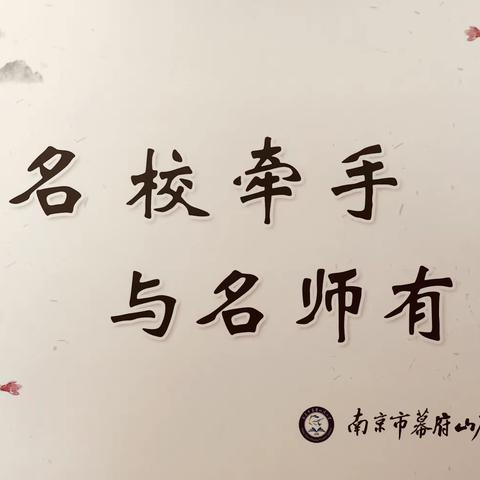 名校牵手
与名师有
南京市幕府山